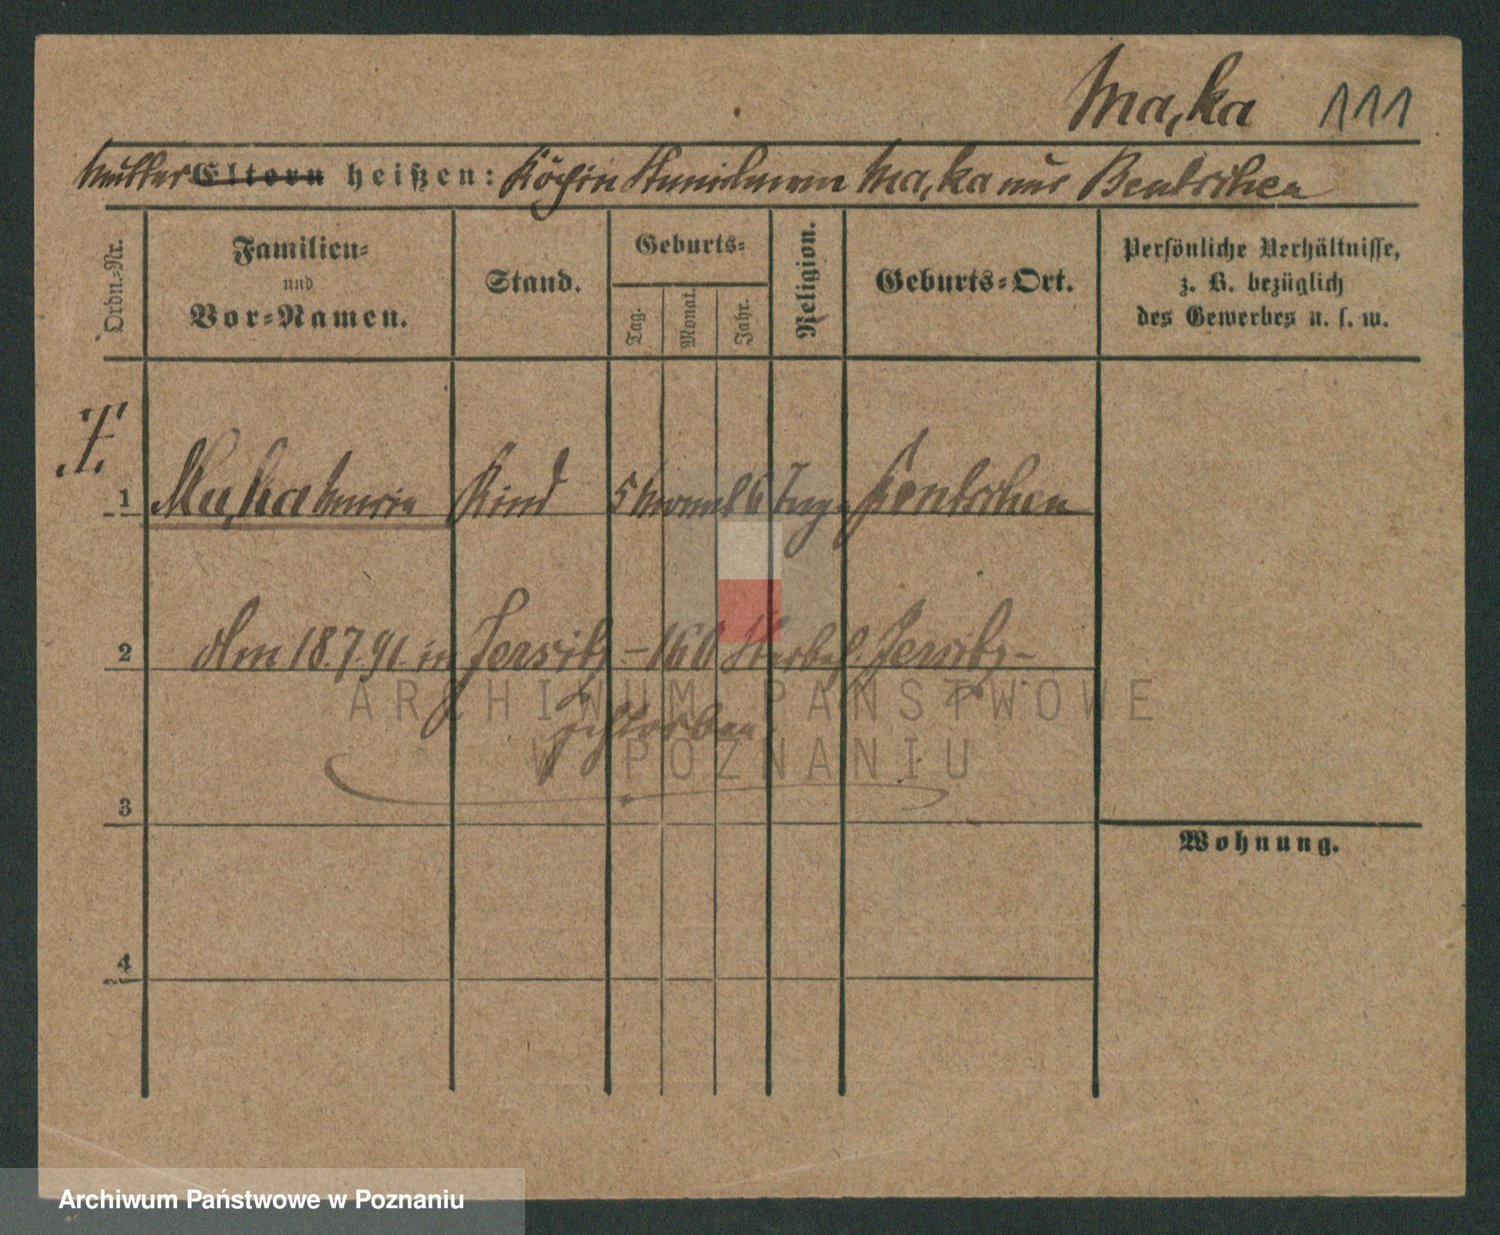 Ma,ka 111
Mutter Eltern heißen: Köchin Ma,ka aus Bentschen
Ordn.-Nr.
Familien-
und
Vor-Namen.
Stand.
Geburts-
Tag.
Monat.
Jahr.
Religion.
Geburts-Ort.
Persönliche Verhältnisse,
z. B. bezüglich
des Gewerbes u. s. w.
1 Ma,ka Maria Kind 5 Monat 6 Tage Bentschen
2 Am 18.7.91. in Jersitz - 160 Sterbef. Jersitz -
gestorben.
3
Wohnung.
4
ARCHIWUM PAŃSTWOWE
W POZNANIU
Archiwum Państwowe w Poznaniu